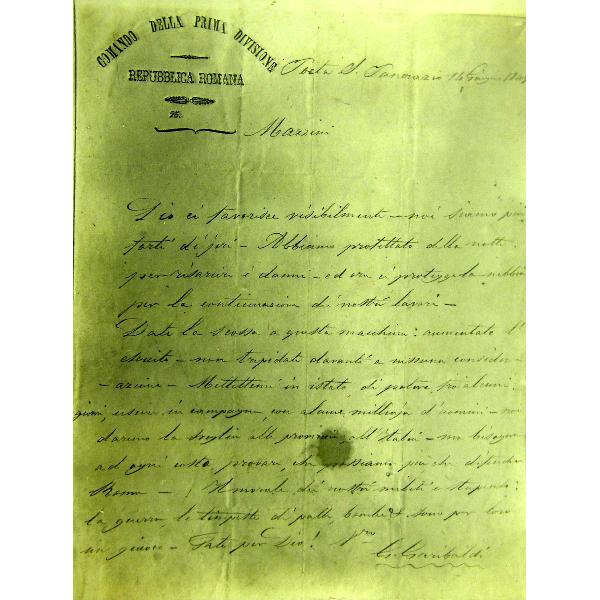 COMANDO DELLA PRIMA DIVISIONE
REPUBBLICA ROMANA
Porta S. Pancrazio 14 Giugno 1849
Mazzini
Dio ci favorisce visibilmente – noi siamo più
forti di jeri – Abbiamo profittato della notte
per risarcire i danni – ed ora ci protegge la nebbia
per la continuazione di nostri lavori –
Date la scossa a questa macchina: aumentate l'
esercito – non trepidate davanti a nissuna consider-
-azione – Mettetemi in istato di potere, fra alcuni
giorni, uscire in campagna, con alcune migliaja d'uomini – noi
daremo la sveglia alle provincie, all'Italia – ma bisogna
ad ogni costo provare, che possiamo più che difender
Roma – Il morale dei nostri militi è stupendo:
la guerra, le tempeste di palle, bombe & sono per loro
un giuoco – Fate per Dio! Vro
G. Garibaldi